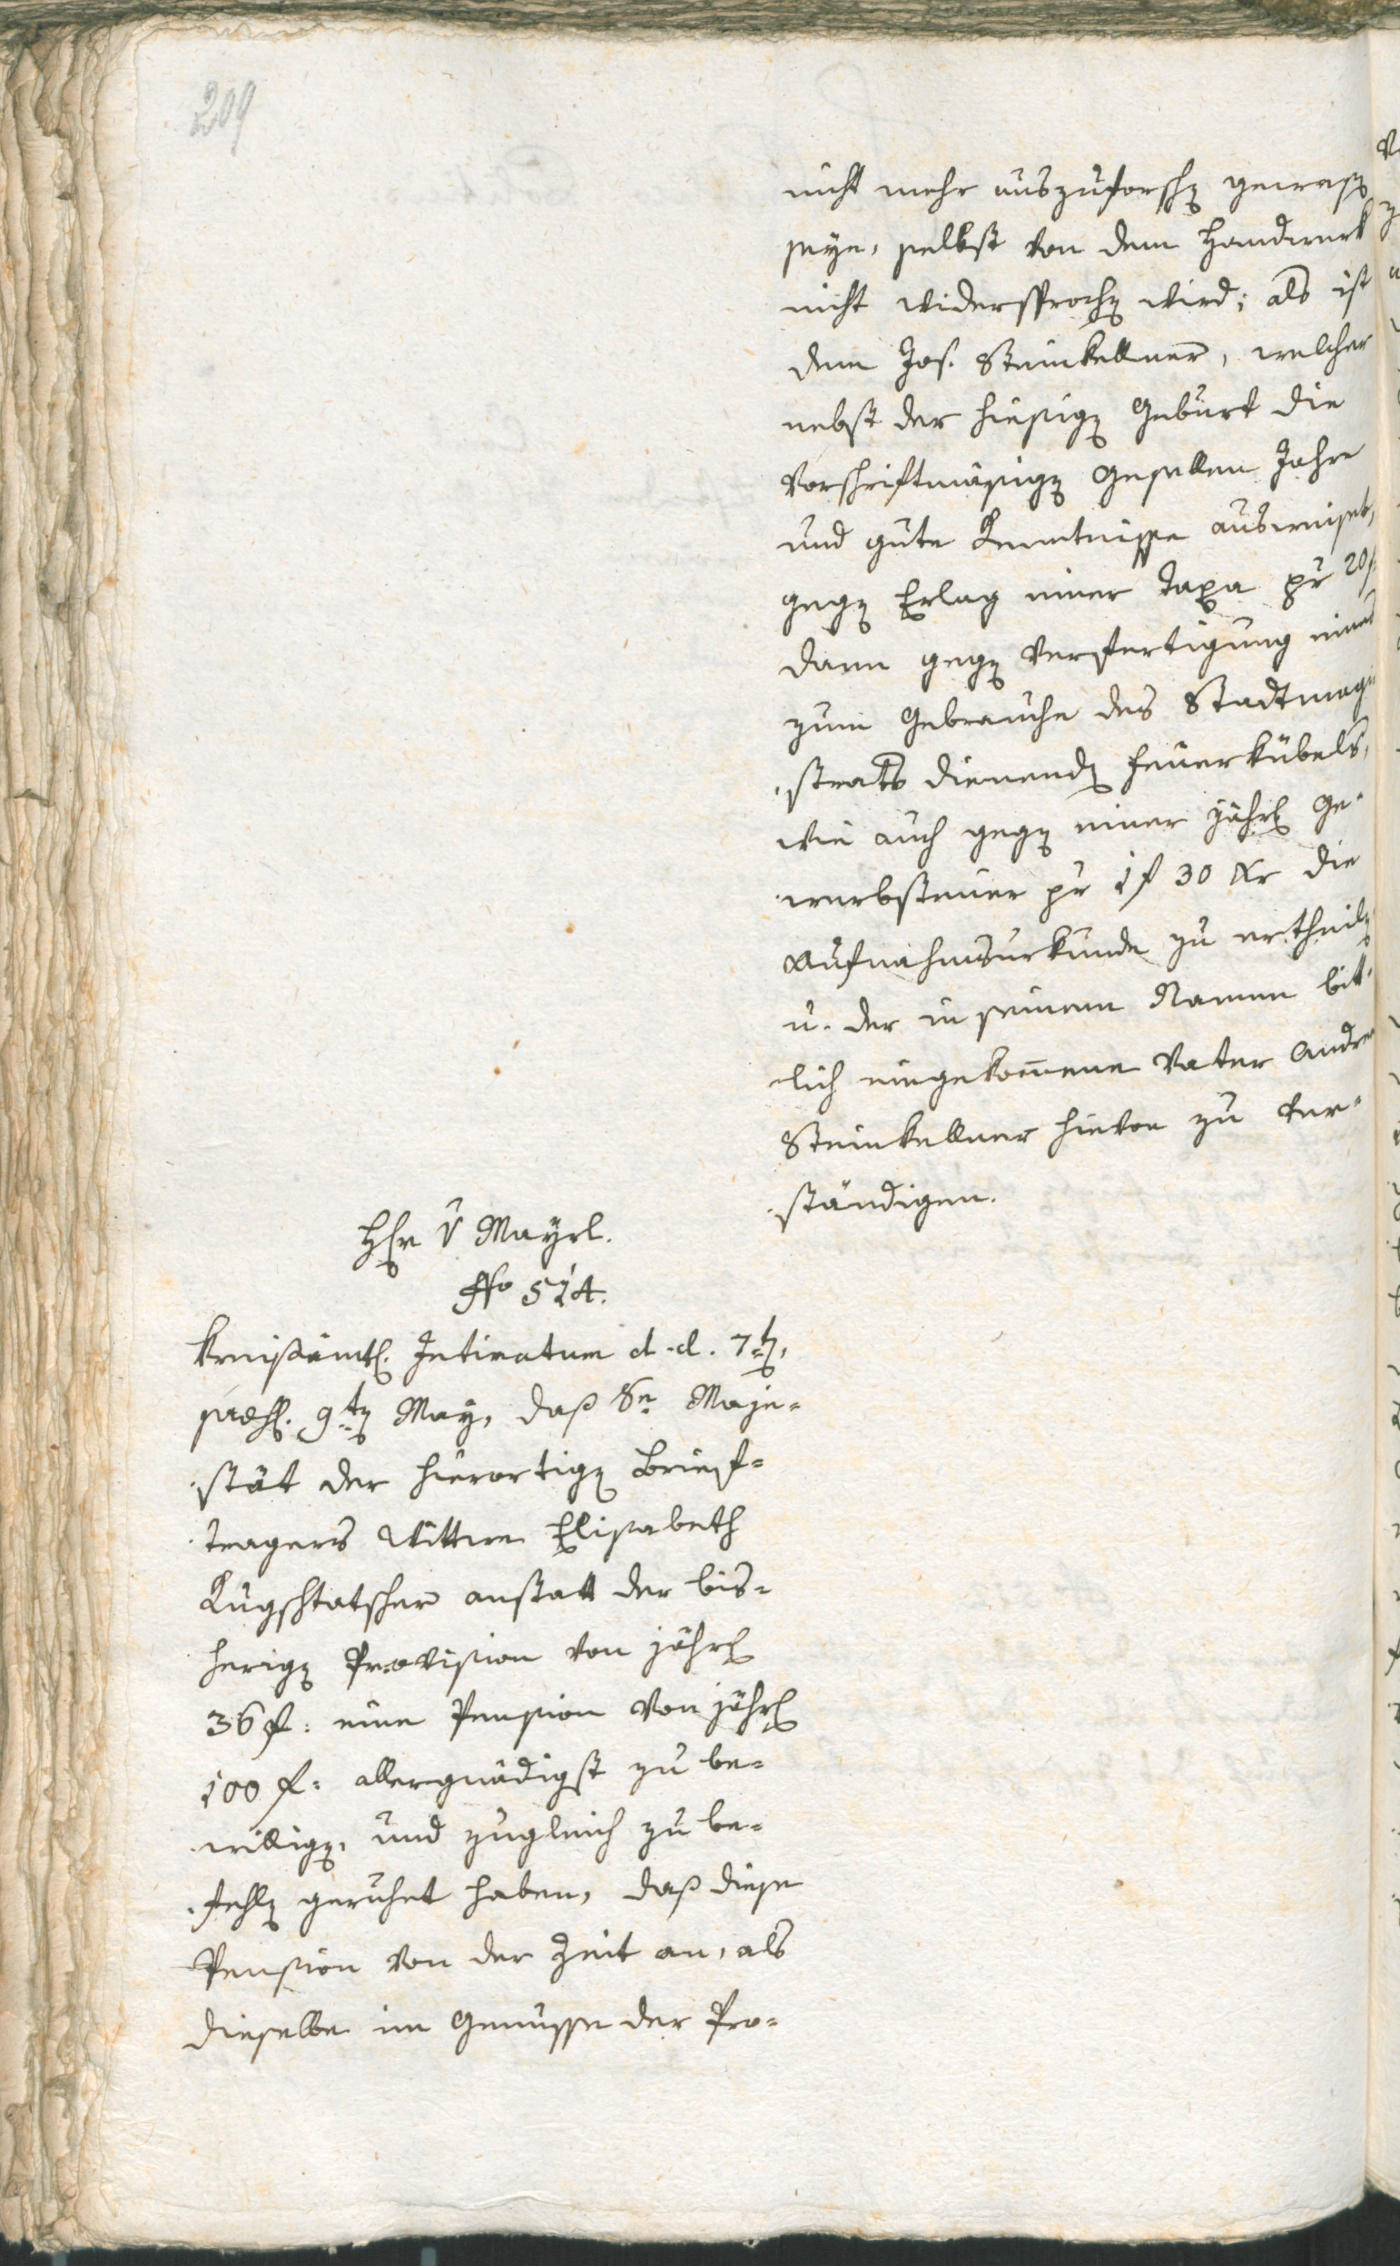 209
nicht mehr auszuforschen gewesen
seye, selbst von dem Handwerk
nicht widersprochen wird; als ist
dem Jos. Steinkellner, welcher
nebst der hiesigen Geburt die
vorschriftmäsigen Gesellen Jahre
und gute Kenntnisse ausweiset,
gegen Erlag einer Taxa pr 20f
dann gegen Verfertigung eines
zum Gebrauche des Stadtmagi
strats dienenden Feuerkübels,
wie auch gegen einer jährl. Ge-
werbsteuer pr 1f 30 Kr die
Aufnahmsurkunde zu ertheilen
u. der in seinem Namen bitt-
lich eingekom̄ene Vater Andree
Steinkellner hievon zu ver-
ständigen.
Hr v Mayrl.
No 514.
Kreisämtl. Intimatum d. d. 7ten,
praes. 9ten May, daß Se Maje-
stät der hierortigen Brief-
tragers Wittwe Elisabeth
Kugstatscher anstatt der bis-
herigen Provision von jährl
36 f: eine Pension von jährl
100 f: allergnädigst zu be-
willigen, und zugleich zu be-
fehlen geruhet haben, daß diese
Pension von der Zeit an, als
dieselbe im Genusse der Pro-